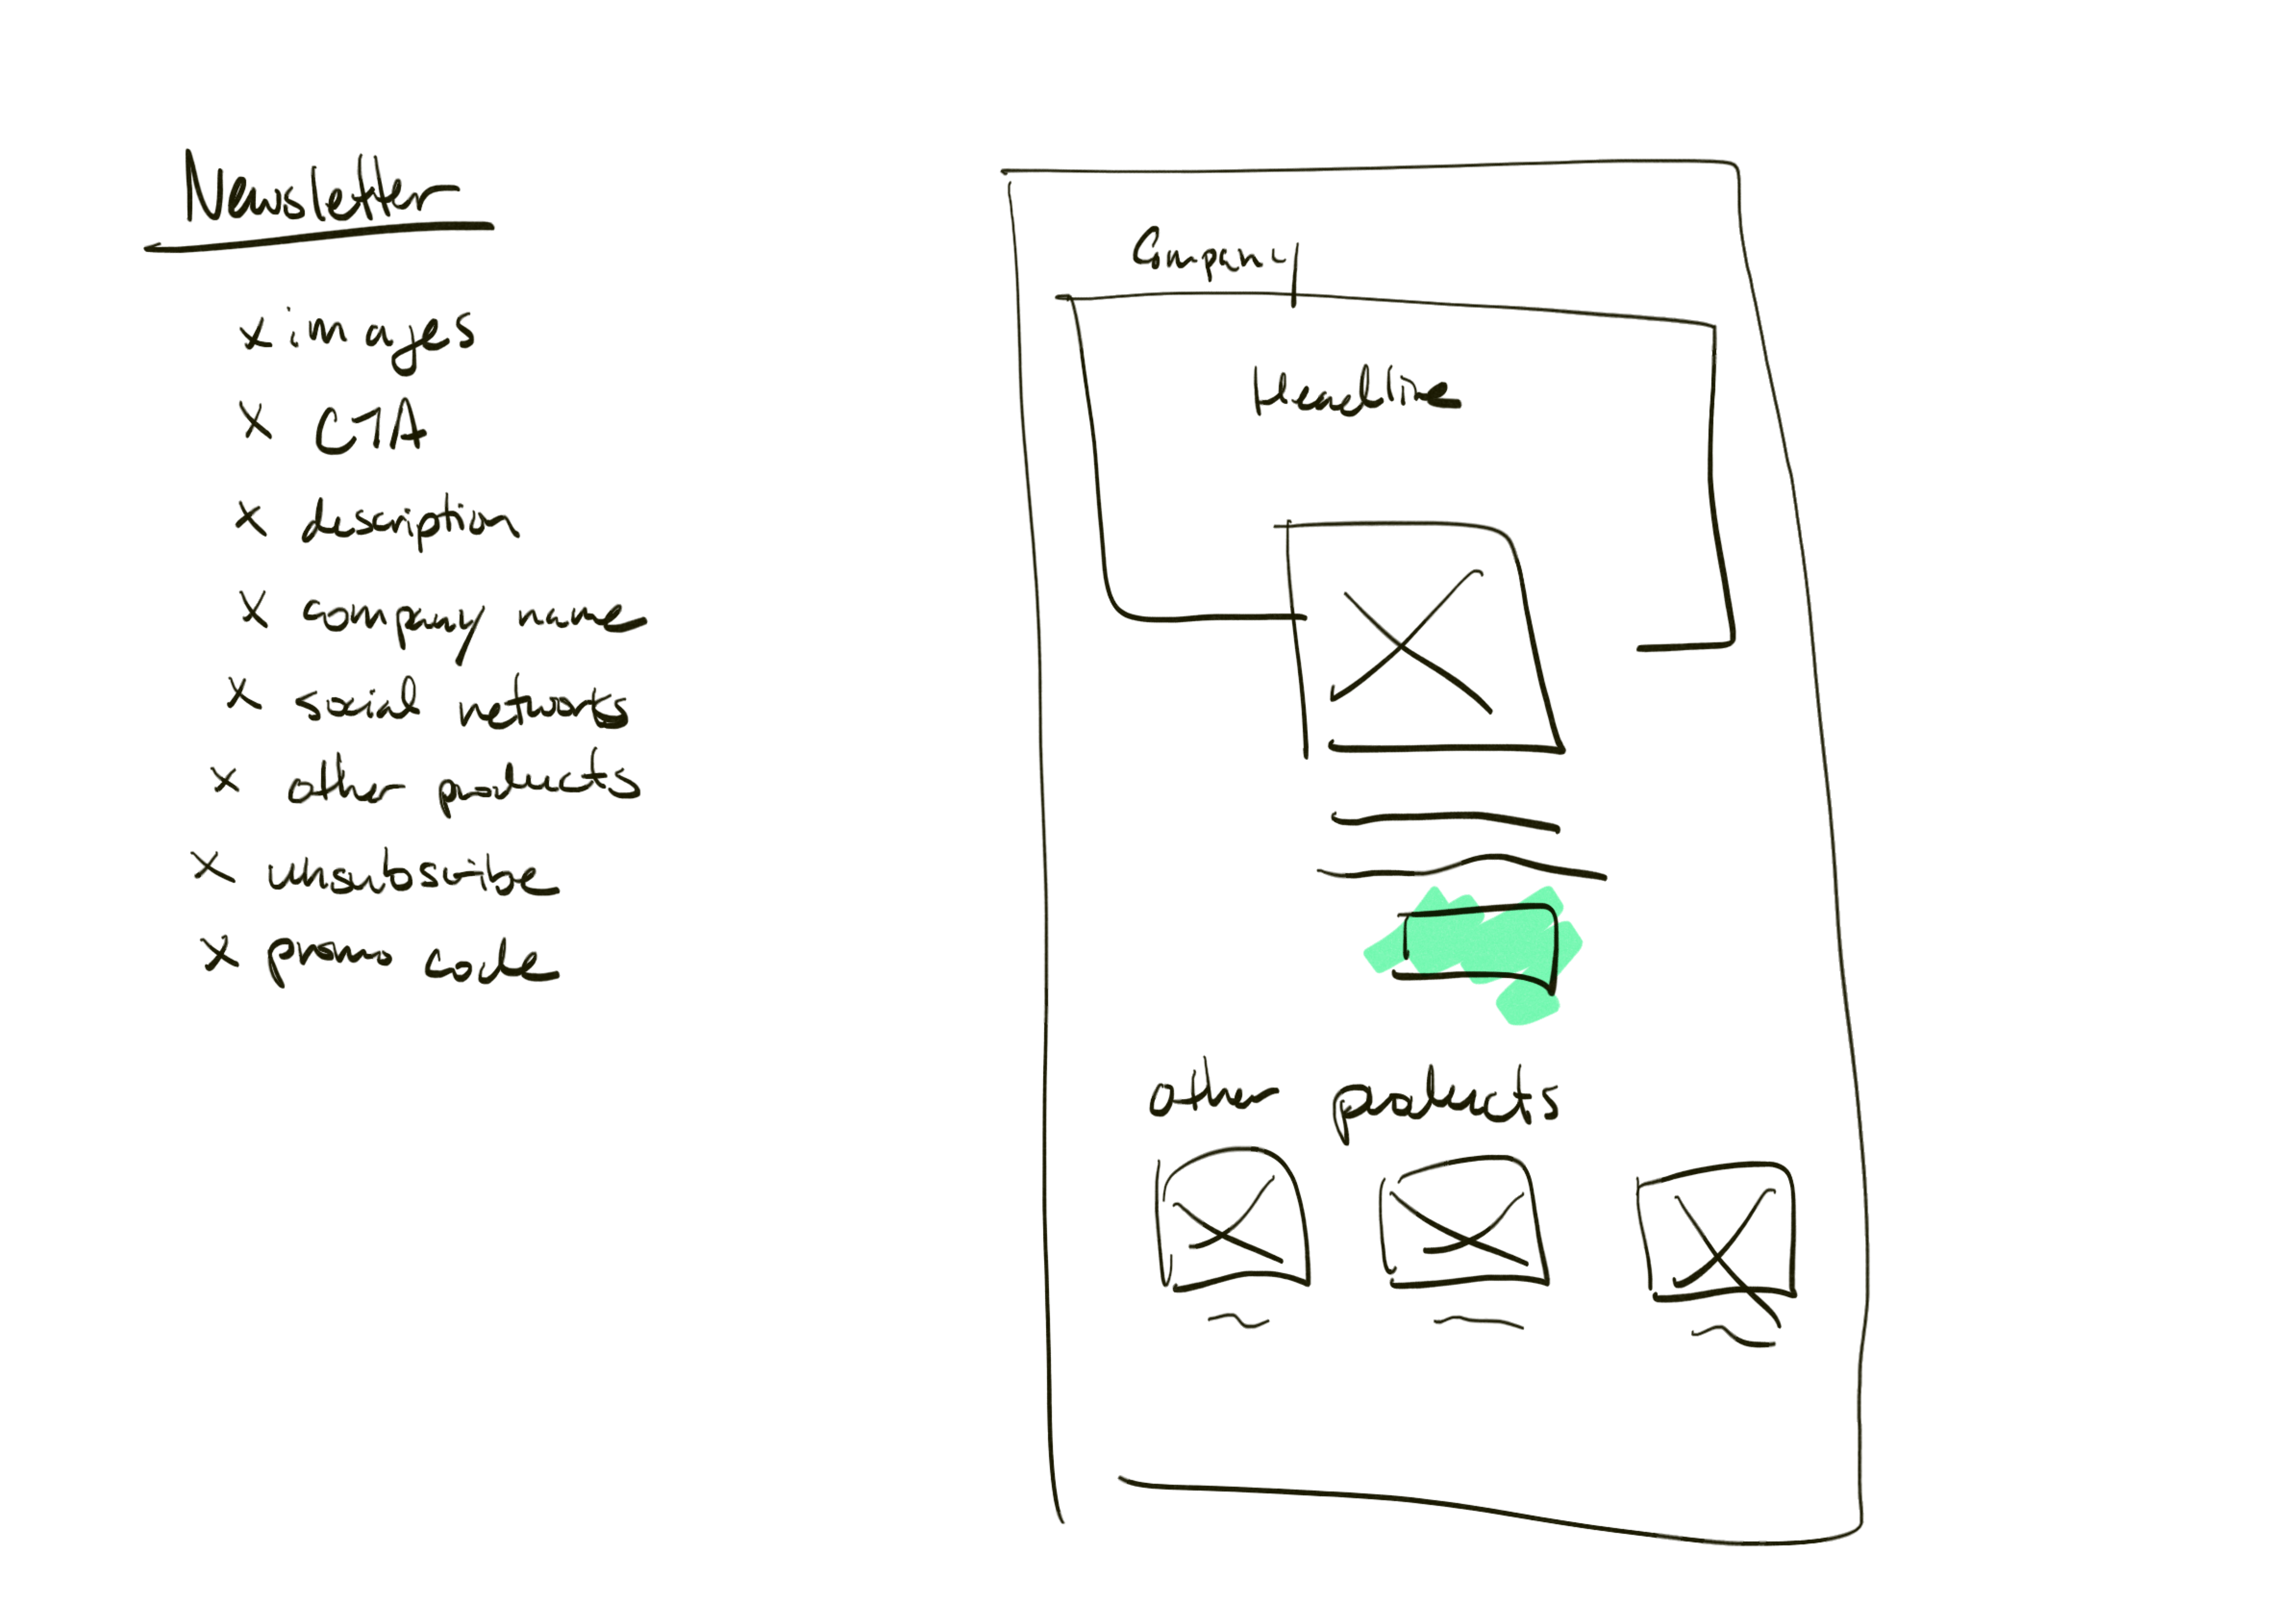 Newsletter
x images
x CTA
x description
x company name
x social networks
x other products
x unsubscribe
x promo code
Company
Headline
other products